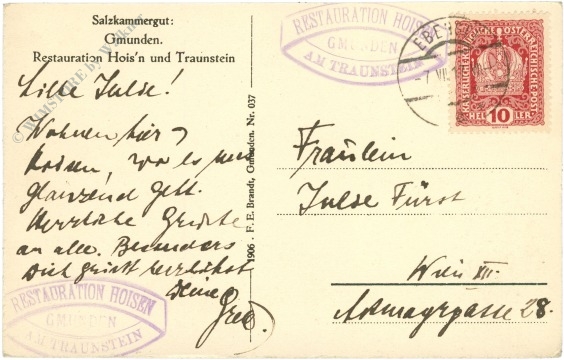 Salzkammergut:
Gmunden.
Restauration Hois'n und Traunstein
Liebe Julse!
Wohnen hier
Hoisen, wo es uns
glänzend geht.
Herzliche Grüße
an alle. Besonders
Dich grüßt herzlichst
Deine
Gree.
1906 F. E. Brandt, Gmunden. Nr. 037
RESTAURATION HOISEN
GMUNDEN
AM TRAUNSTEIN
EBENS
7 VII
KAISERLICHE KÖNIGLICHE ÖSTERREICHISCHE POST
10
HELLER
Fräulein
Julse Fürst
Wien XIII.
28.
RESTAURATION HOISEN
GMUNDEN
AM TRAUNSTEIN